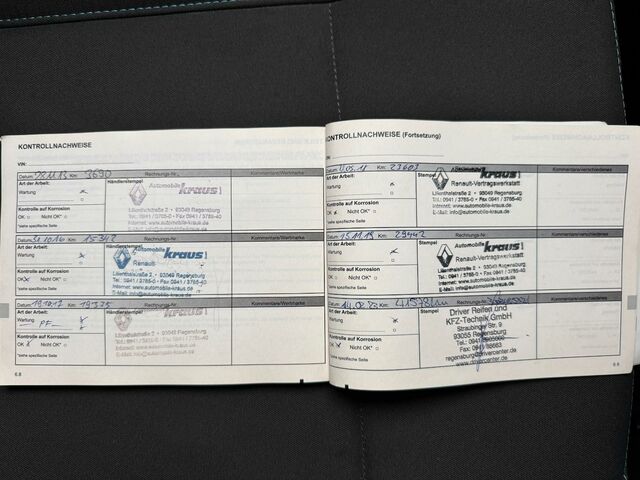 KONTROLLNACHWEISE
VIN:
Datum: Km: 9690 Rechnungs-Nr. Kommentare/Werkmarke
Art der Arbeit: Händlerstempel
Wartung
Automobile kraus!
Kontrolle auf Korrosion
Lilienthalstraße 2 • 93049 Regensburg
OK Nicht OK*
Tel.: 0941 / 3785-0 • Fax 0941 / 3785-40
Internet: www.automobile-kraus.de
*siehe spezifische Seite
E-Mail: info@automobile-kraus.de
Datum: 31.10.16 Km: 15342 Rechnungs-Nr. Kommentare/Werkmarke
Art der Arbeit: Händlerstempel
Wartung
Automobile kraus!
Renault
Kontrolle auf Korrosion
Lilienthalstraße 2 • 93049 Regensburg
OK Nicht OK*
Tel.: 0941 / 3785-0 • Fax 0941 / 3785-40
Internet: www.automobile-kraus.de
*siehe spezifische Seite
E-Mail: info@automobile-kraus.de
Datum: 19.10.17 Km: 19375 Rechnungs-Nr. Kommentare/Werkmarke
Art der Arbeit: Händlerstempel
Wartung
PF
kraus!
Kontrolle auf Korrosion
Lilienthalstraße 2 • 93049 Regensburg
OK Nicht OK*
*siehe spezifische Seite
6.8
KONTROLLNACHWEISE (Fortsetzung)
VIN:
Datum: Km: 23603 Rechnungs-Nr. Kommentare/verschiedenes
Art der Arbeit: Stempel
Wartung
kraus!
Renault-Vertragswerkstatt
Kontrolle auf Korrosion
Lilienthalstraße 2 • 93049 Regensburg
OK Nicht OK*
Tel.: 0941 / 3785-0 • Fax 0941 / 3785-40
Internet: www.automobile-kraus.de
*siehe spezifische Seite
E-Mail: info@automobile-kraus.de
Datum: 15.11.19 Km: 29442 Rechnungs-Nr. Kommentare/verschiedenes
Art der Arbeit: Stempel
Wartung
Automobile kraus!
Renault-Vertragswerkstatt
Kontrolle auf Korrosion
Lilienthalstraße 2 • 93049 Regensburg
OK Nicht OK*
Tel.: 0941 / 3785-0 • Fax 0941 / 3785-40
Internet: www.automobile-kraus.de
*siehe spezifische Seite
E-Mail: info@automobile-kraus.de
Datum: Km: Rechnungs-Nr. Kommentare/verschiedenes
Art der Arbeit: Stempel
Wartung
Driver Reifen und
KFZ-Technik GmbH
Straubinger Str. 9
Kontrolle auf Korrosion
93055 Regensburg
OK Nicht OK*
*siehe spezifische Seite
regensburg@drivercenter.de
www.drivercenter.de
6.9